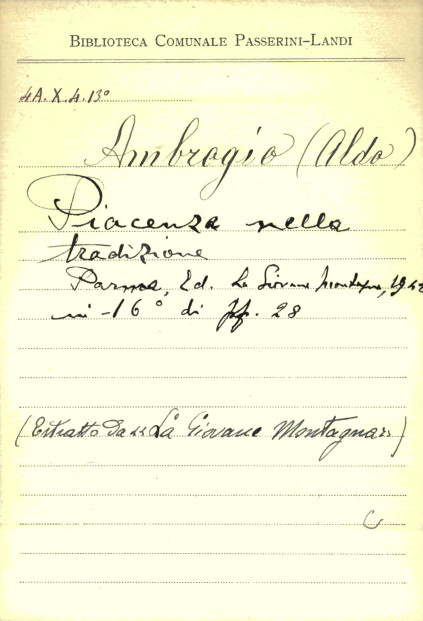 BIBLIOTECA COMUNALE PASSERINI-LANDI
4A. X. 4. 13°
Ambrogio (Aldo)
Piacenza nella
tradizione
Parma, Ed. La Giovane Montagna, 1942
in-16° di pp. 28
(Estratto da «La Giovane Montagna»)